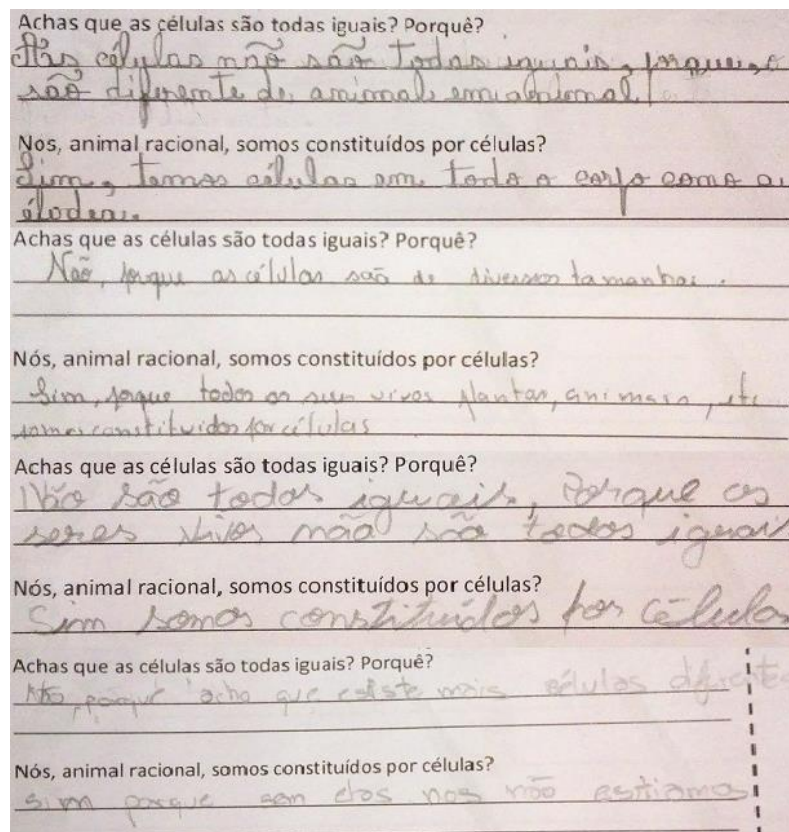 Achas que as células são todas iguais? Porquê?
As células não são todas iguais, porque
são diferente de animal em animal
Nos, animal racional, somos constituídos por células?
Sim, temos células em todo o corpo como a
élodea.
Achas que as células são todas iguais? Porquê?
Não, porque as células são de diversos tamanhos.
Nós, animal racional, somos constituídos por células?
Sim, porque todos os seres vivos plantas, animais, etc
somos constituidos por células
Achas que as células são todas iguais? Porquê?
Não são todas iguais, Porque os
seres vivos não são todos iguais
Nós, animal racional, somos constituídos por células?
Sim somos constituídos por células
Achas que as células são todas iguais? Porquê?
Não, porque acho que esiste mais células diferente
Nós, animal racional, somos constituídos por células?
sim porque sem elas nos não